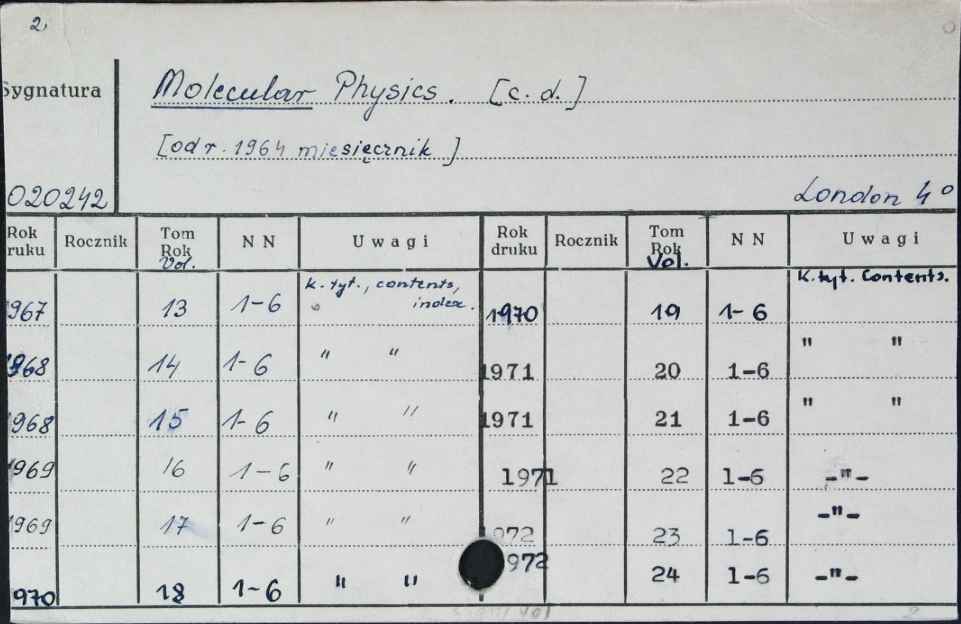 2,
Sygnatura
Molecular Physics. [c.d.]
[od r. 1964 miesięcznik]
020242
London 4°
Rok druku Rocznik Tom Rok Vol. NN Uwagi Rok druku Rocznik Tom Rok Vol. NN Uwagi
1967 13 1-6 k. tyt., contents, index. 1970 19 1-6 K. tyt. Contents.
1968 14 1-6 " " 1971 20 1-6 " "
1968 15 1-6 " " 1971 21 1-6 " "
1969 16 1-6 " " 1971 22 1-6 -"-
1969 17 1-6 " " 1972 23 1-6 -"-
1970 18 1-6 " " 1972 24 1-6 -"-
2